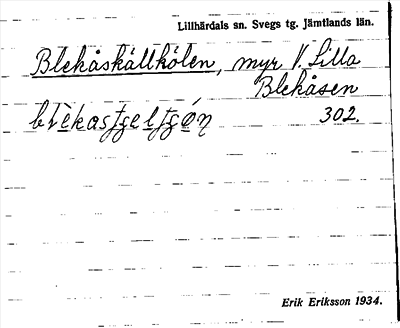 Lillhärdals sn. Svegs tg. Jämtlands län.
Blekåskällkölen, myr V. Lilla
Blekåsen
302.
Erik Eriksson 1934.